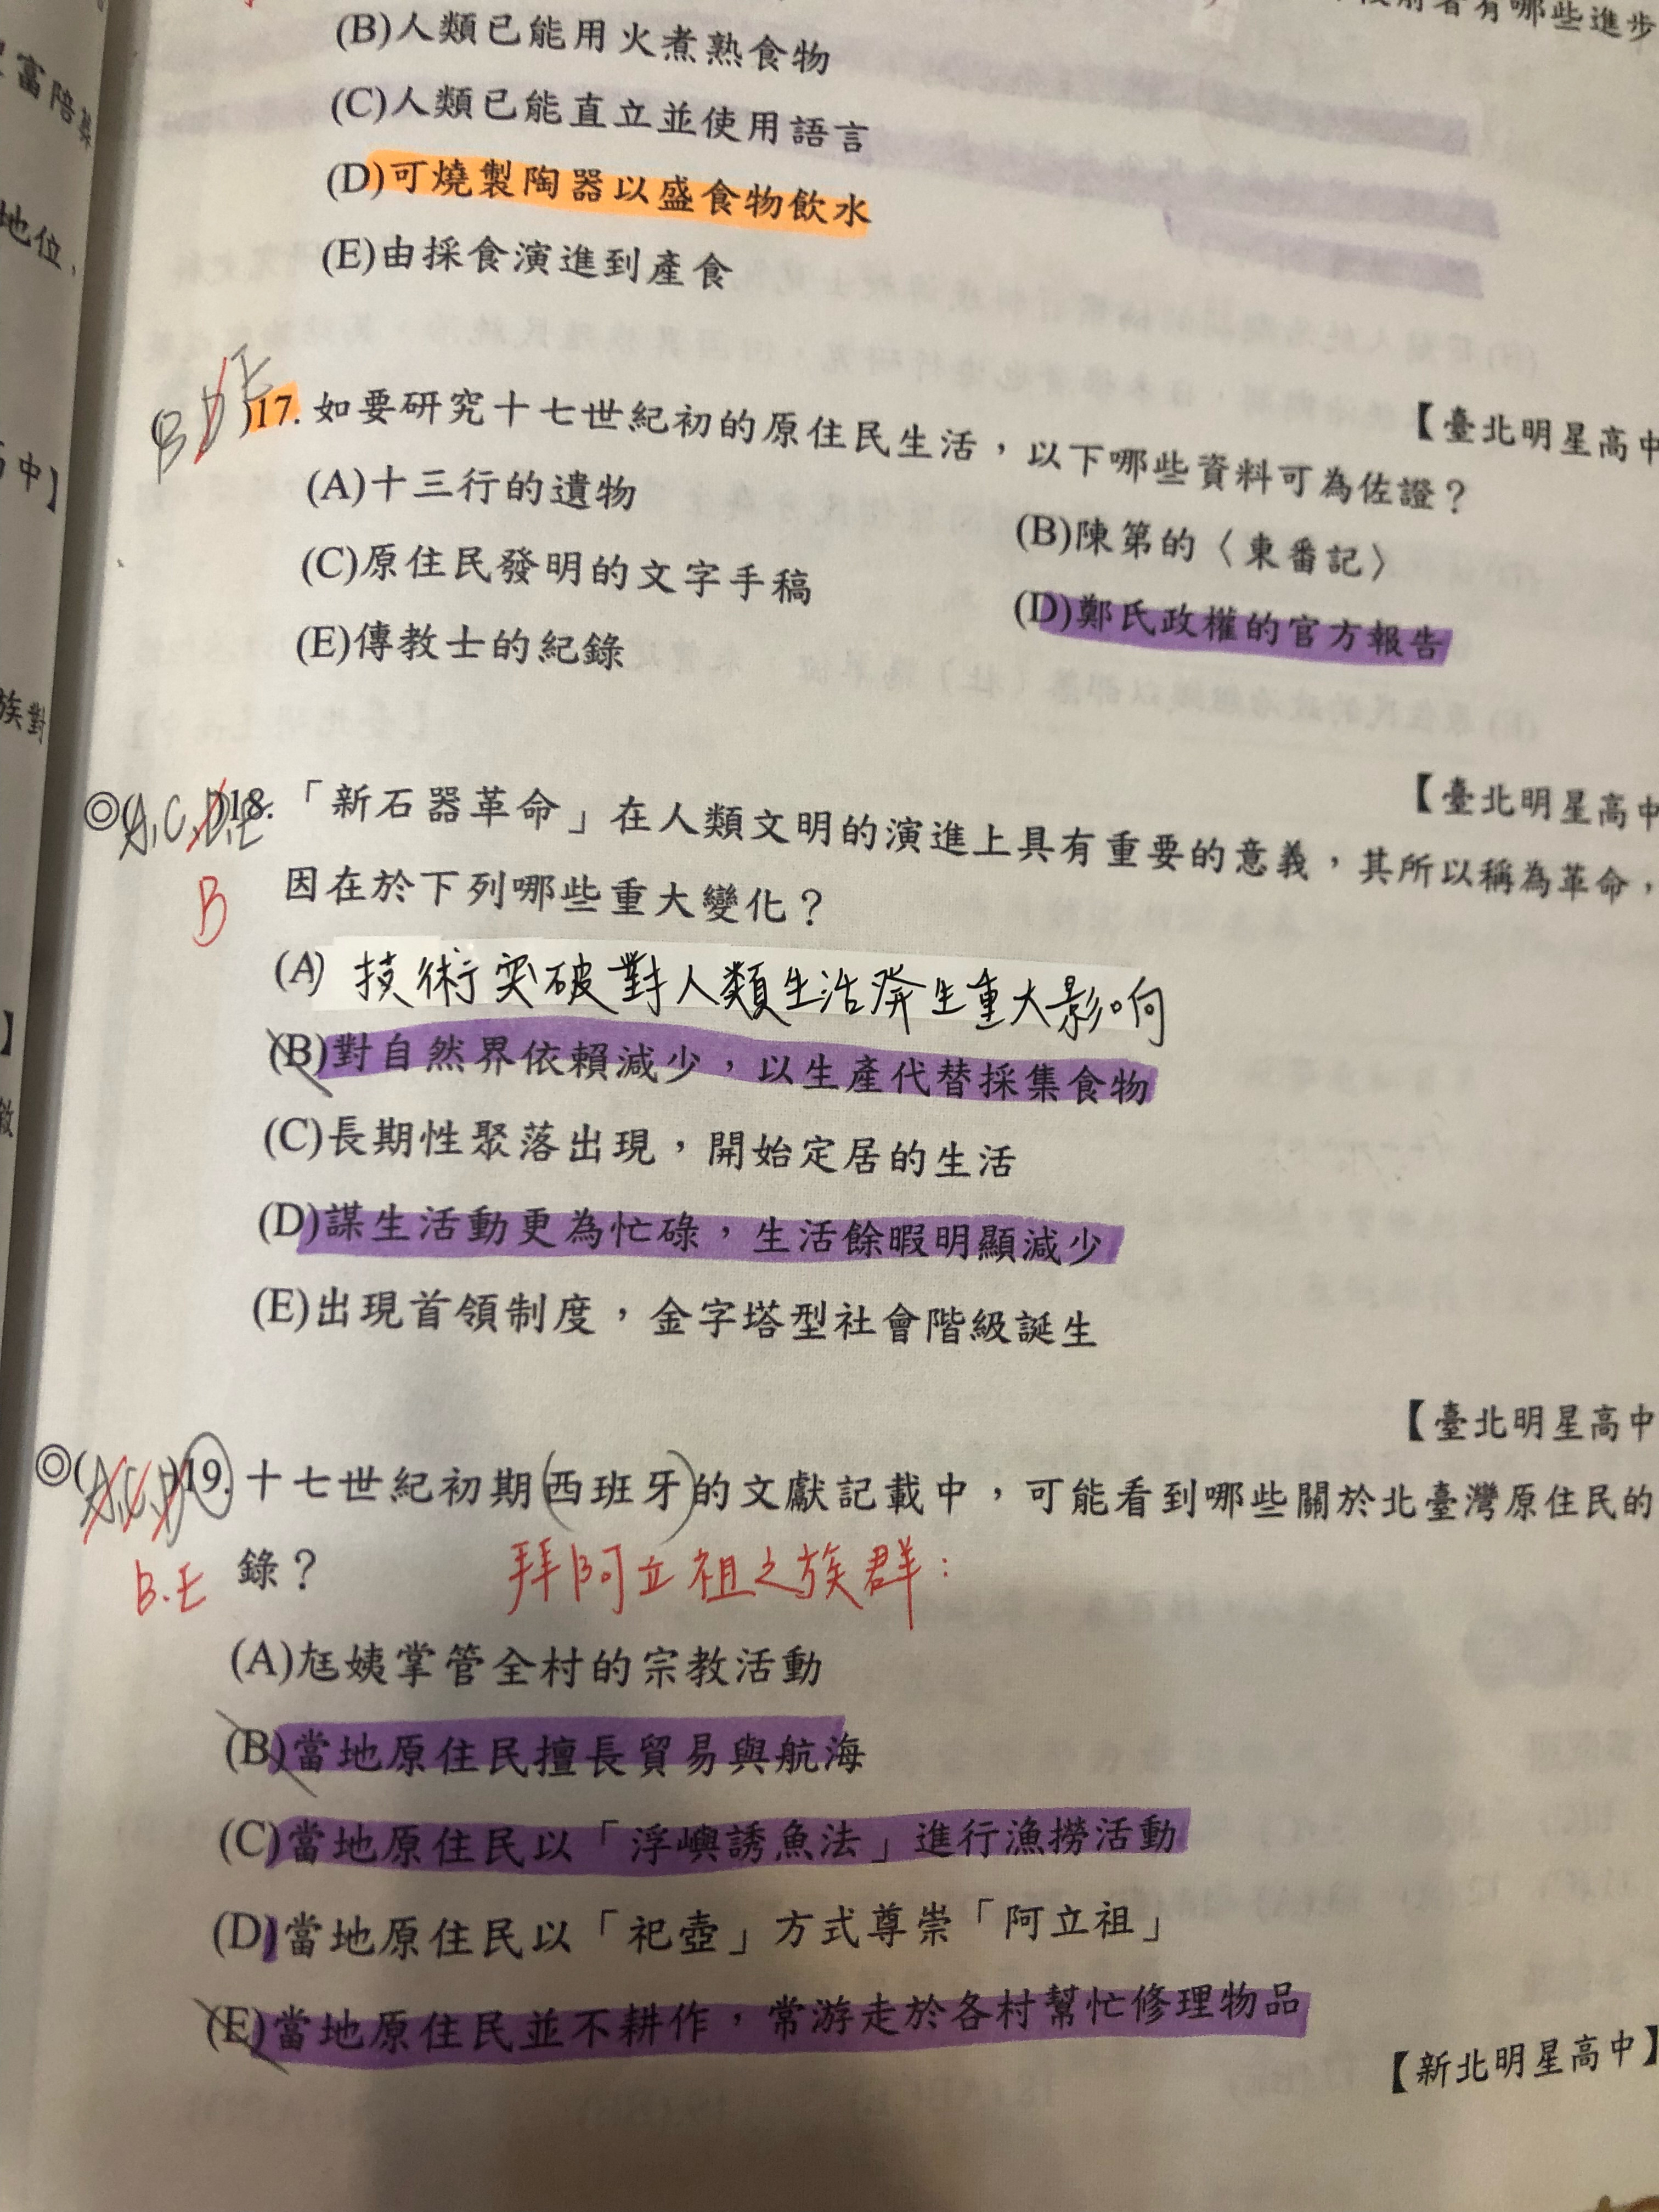 有哪些進步
(B)人類已能用火煮熟食物
(C)人類已能直立並使用語言
(D)可燒製陶器以盛食物飲水
(E)由採食演進到產食
富陪葬
地位,
中】
族對
【臺北明星高中
BDE
)17. 如要研究十七世紀初的原住民生活,以下哪些資料可為佐證?
(A)十三行的遺物
(B)陳第的〈東番記〉
(C)原住民發明的文字手稿
(D)鄭氏政權的官方報告
(E)傳教士的紀錄
【臺北明星高中
◎(A,C,D,E)18. 「新石器革命」在人類文明的演進上具有重要的意義,其所以稱為革命,
B
因在於下列哪些重大變化?
(A) 技術突破對人類生活發生重大影响
(B)對自然界依賴減少,以生產代替採集食物
(C)長期性聚落出現,開始定居的生活
(D)謀生活動更為忙碌,生活餘暇明顯減少
(E)出現首領制度,金字塔型社會階級誕生
【臺北明星高中
◎(A,C,D)19. 十七世紀初期(西班牙)的文獻記載中,可能看到哪些關於北臺灣原住民的
B.E
錄?
拜阿立祖之族群:
(A)尪姨掌管全村的宗教活動
(B)當地原住民擅長貿易與航海
(C)當地原住民以「浮嶼誘魚法」進行漁撈活動
(D)當地原住民以「祀壺」方式尊崇「阿立祖」
(E)當地原住民並不耕作,常游走於各村幫忙修理物品
【新北明星高中】